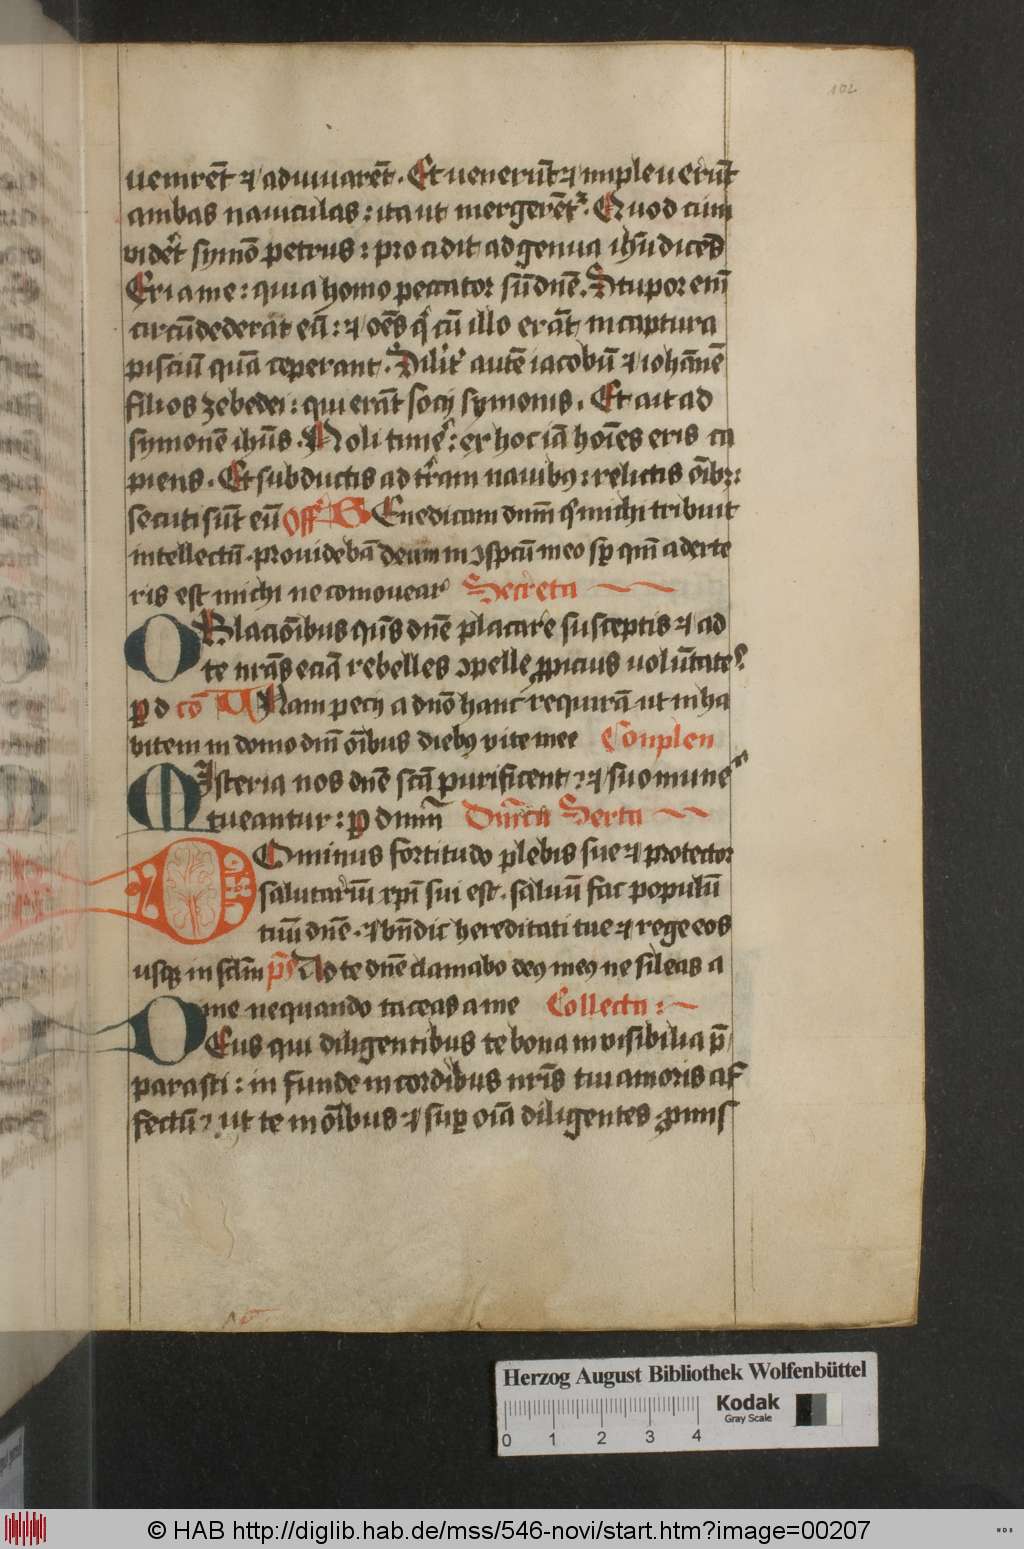 102
uenirēt ⁊ adiuuarēt. Et uenerūt ⁊ impleuerūt
ambas nauiculas: ita ut mergerēt᷑. Quod cum
vidēt symō petrus: procidit ad genua ihū dicēs
Exi a me: quia homo peccator sū dnē. Stupor enī
circūdederat eū: ⁊ oēs q̇ cū illo erāt in captura
pisciū quā ceperant. Silit᷑ autē iacobū ⁊ iohānē
filios zebedei: qui erāt socij symonis. Et ait ad
symonē ihūs. Noli timē: ex hoc iā hoīes eris ca
piens. Et subductis ad trām nauibꝰ: relictis oībꝫ:
secuti sūt eū Off᷑ BEnedicam dnm̄ q̇ michi tribuit
intellectū. prouidebā deum in ↄspcū meo sꝑ qm̄ a dexte
ris est michi ne comouear᷑ Secreta
OBlacōibus qūs dnē placare susceptis ⁊ ad
te nrās eciā rebelles ↄpelle ꝓpicius uolūtates
ꝑ d cō VNam pecij a dnō hanc requirā ut inha
bitem in domo dnī oībus diebꝰ vite mee Conplen
MIsteria nos dnē scā purificent: ⁊ suo munere
tueantur: ꝑ dnm̄ Dnīca Sexta
DOminus fortitudo plebis sue ⁊ protector
salutariū xpī sui est. saluū fac populū
tuū dnē. ⁊ bn̄dic hereditati tue ⁊ rege eos
usqꝫ in sclm̄ ps̄ Ad te dnē clamabo deꝰ meꝰ ne sileas a
me nequando taceas a me Collecta:
DEus qui diligentibus te bona invisibilia p̄
parasti: in funde in cordibus nrīs tui amoris af
fectū: ut te in oībus ⁊ suꝑ oīa diligentes ꝓmis
Herzog August Bibliothek Wolfenbüttel
Kodak
Gray Scale
0 1 2 3 4
© HAB http://diglib.hab.de/mss/546-novi/start.htm?image=00207